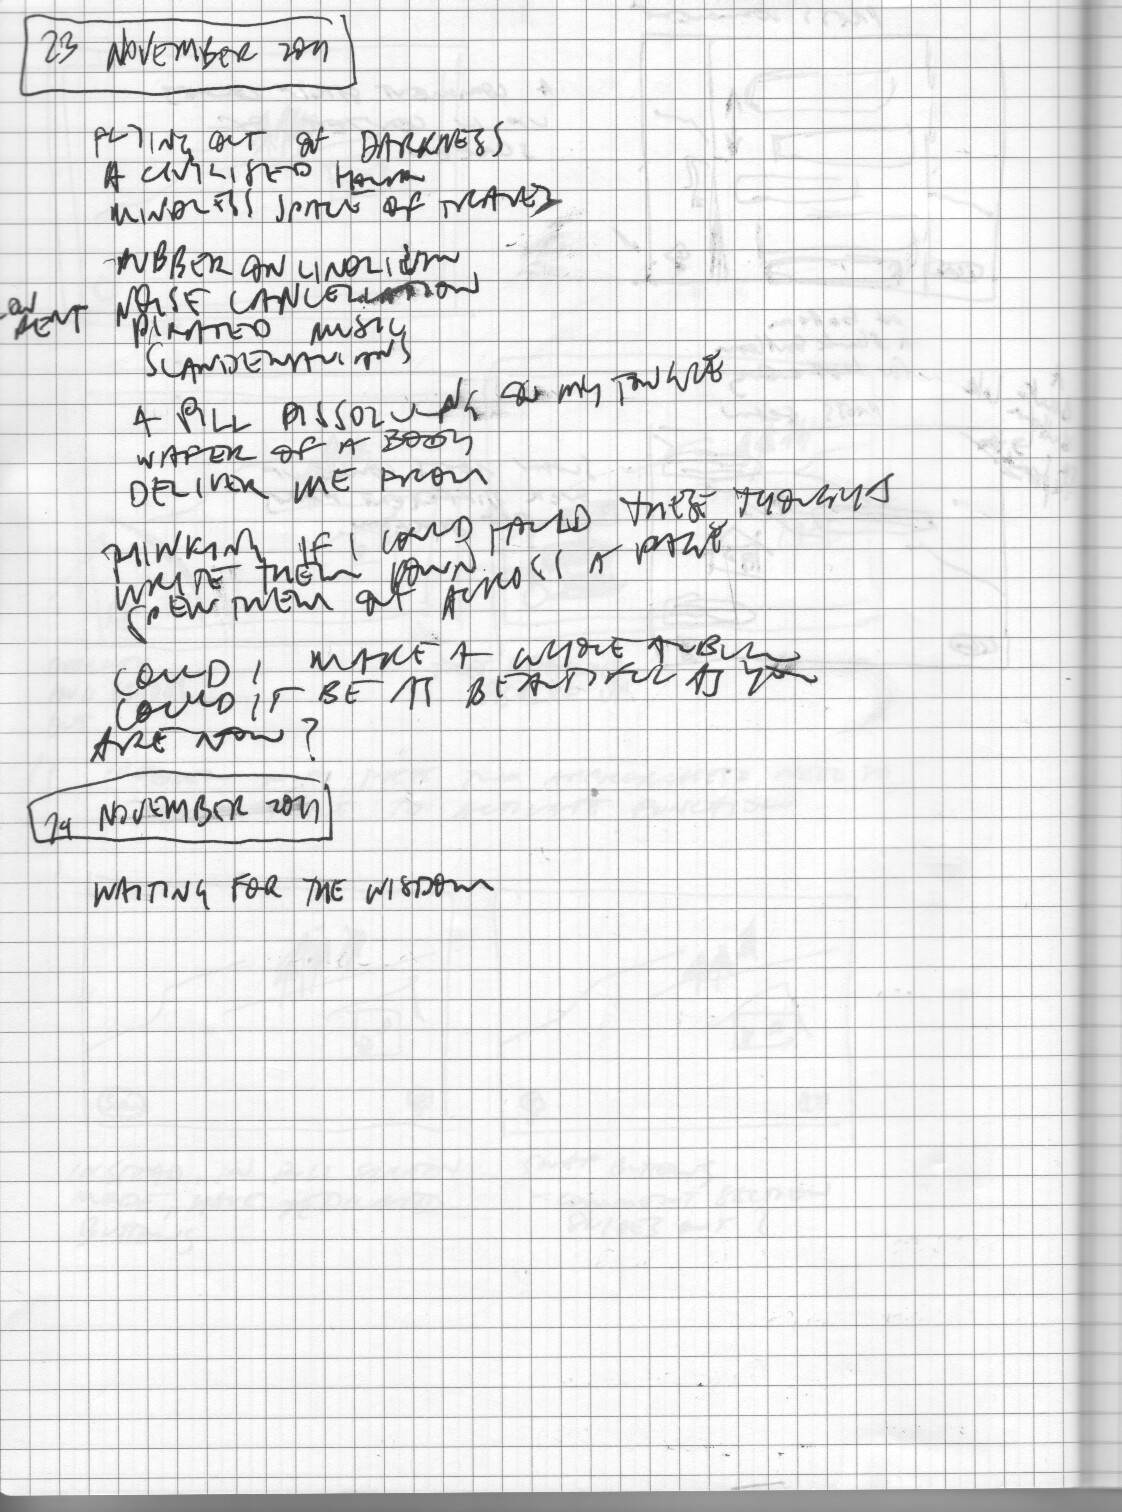 23 NOVEMBER 2011
FLYING OUT OF DARKNESS
A CIVILISED HAVEN
MINDLESS SPACE OF TRAVEL
RUBBER ON LINOLIUM
NOISE CANCELLATION
PIRATED MUSIC
SCANDENAVIANS
A PILL DISSOLVING ON MY TONGUE
WAFER OF A BODY
DELIVER ME FROM
THINKING IF I COULD HOLD THESE THOUGHTS
WRITE THEM DOWN
SPEW THEM OUT ACROSS A PAGE
COULD I MAKE A WHOLE ALBUM
COULD IT BE AS BEAUTIFUL AS YOU
ARE NOW?
24 NOVEMBER 2011
WAITING FOR THE WISDOM